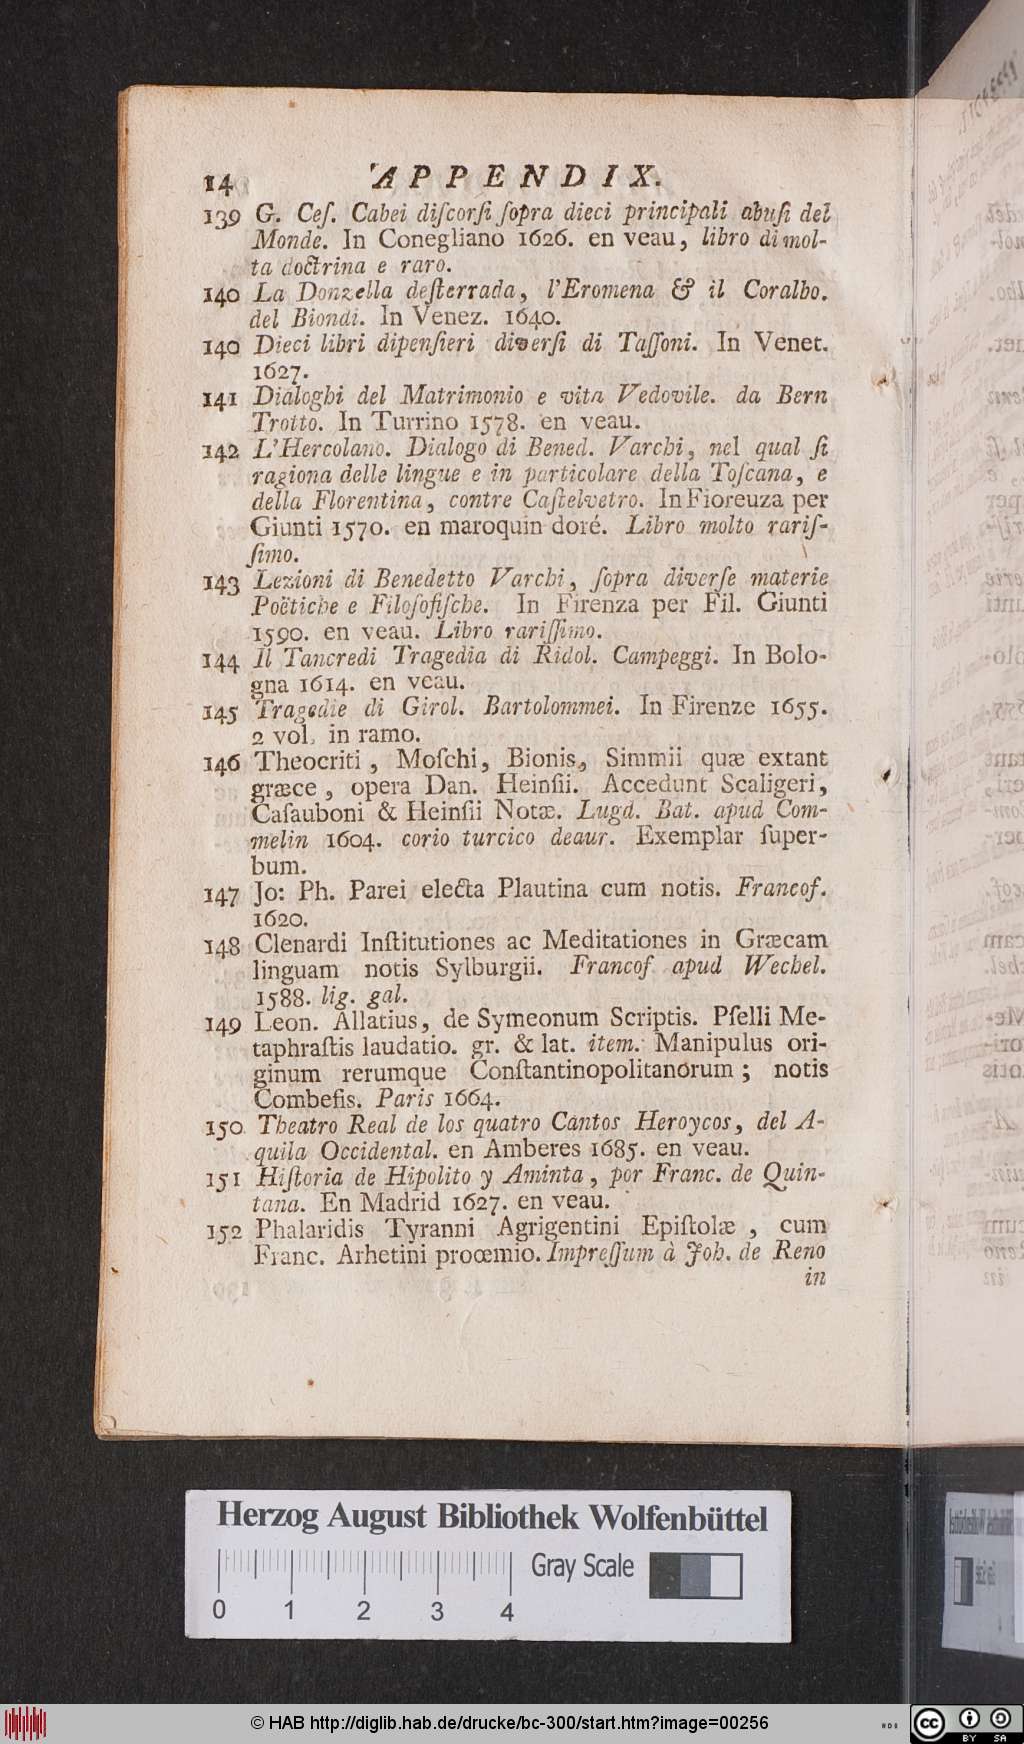 14 APPENDIX.
139 G. Ceſ. Cabei diſcorſi ſopra dieci principali abuſi del
Monde. In Conegliano 1626. en veau, libro di mol-
ta doctrina e raro.
140 La Donzella deſterrada, l'Eromena & il Coralbo.
del Biondi. In Venez. 1640.
140 Dieci libri dipenſieri diverſi di Taſſoni. In Venet.
1627.
141 Dialoghi del Matrimonio e vita Vedovile. da Bern
Trotto. In Turrino 1578. en veau.
142 L'Hercolano. Dialogo di Bened. Varchi, nel qual ſi
ragiona delle lingue e in particolare della Toſcana, e
della Florentina, contre Caſtelvetro. In Fioreuza per
Giunti 1570. en maroquin doré. Libro molto rariſ-
ſimo.
143 Lezioni di Benedetto Varchi, ſopra diverſe materie
Poëtiche e Filoſofiſche. In Firenza per Fil. Giunti
1590. en veau. Libro rariſſimo.
144 Il Tancredi Tragedia di Ridol. Campeggi. In Bolo-
gna 1614. en veau.
145 Tragedie di Girol. Bartolommei. In Firenze 1655.
2 vol. in ramo.
146 Theocriti, Moſchi, Bionis, Simmii quæ extant
græce, opera Dan. Heinſii. Accedunt Scaligeri,
Caſauboni & Heinſii Notæ. Lugd. Bat. apud Com-
melin 1604. corio turcico deaur. Exemplar ſuper-
bum.
147 Jo: Ph. Parei electa Plautina cum notis. Francof.
1620.
148 Clenardi Inſtitutiones ac Meditationes in Græcam
linguam notis Sylburgii. Francof apud Wechel.
1588. lig. gal.
149 Leon. Allatius, de Symeonum Scriptis. Pſelli Me-
taphraſtis laudatio. gr. & lat. item. Manipulus ori-
ginum rerumque Conſtantinopolitanorum; notis
Combefis. Paris 1664.
150 Theatro Real de los quatro Cantos Heroycos, del A-
quila Occidental. en Amberes 1685. en veau.
151 Hiſtoria de Hipolito y Aminta, por Franc. de Quin-
tana. En Madrid 1627. en veau.
152 Phalaridis Tyranni Agrigentini Epiſtolæ, cum
Franc. Arhetini proœmio. Impreſſum à Joh. de Reno
in
Herzog August Bibliothek Wolfenbüttel
Gray Scale
0 1 2 3 4
© HAB http://diglib.hab.de/drucke/bc-300/start.htm?image=00256
cc BY SA